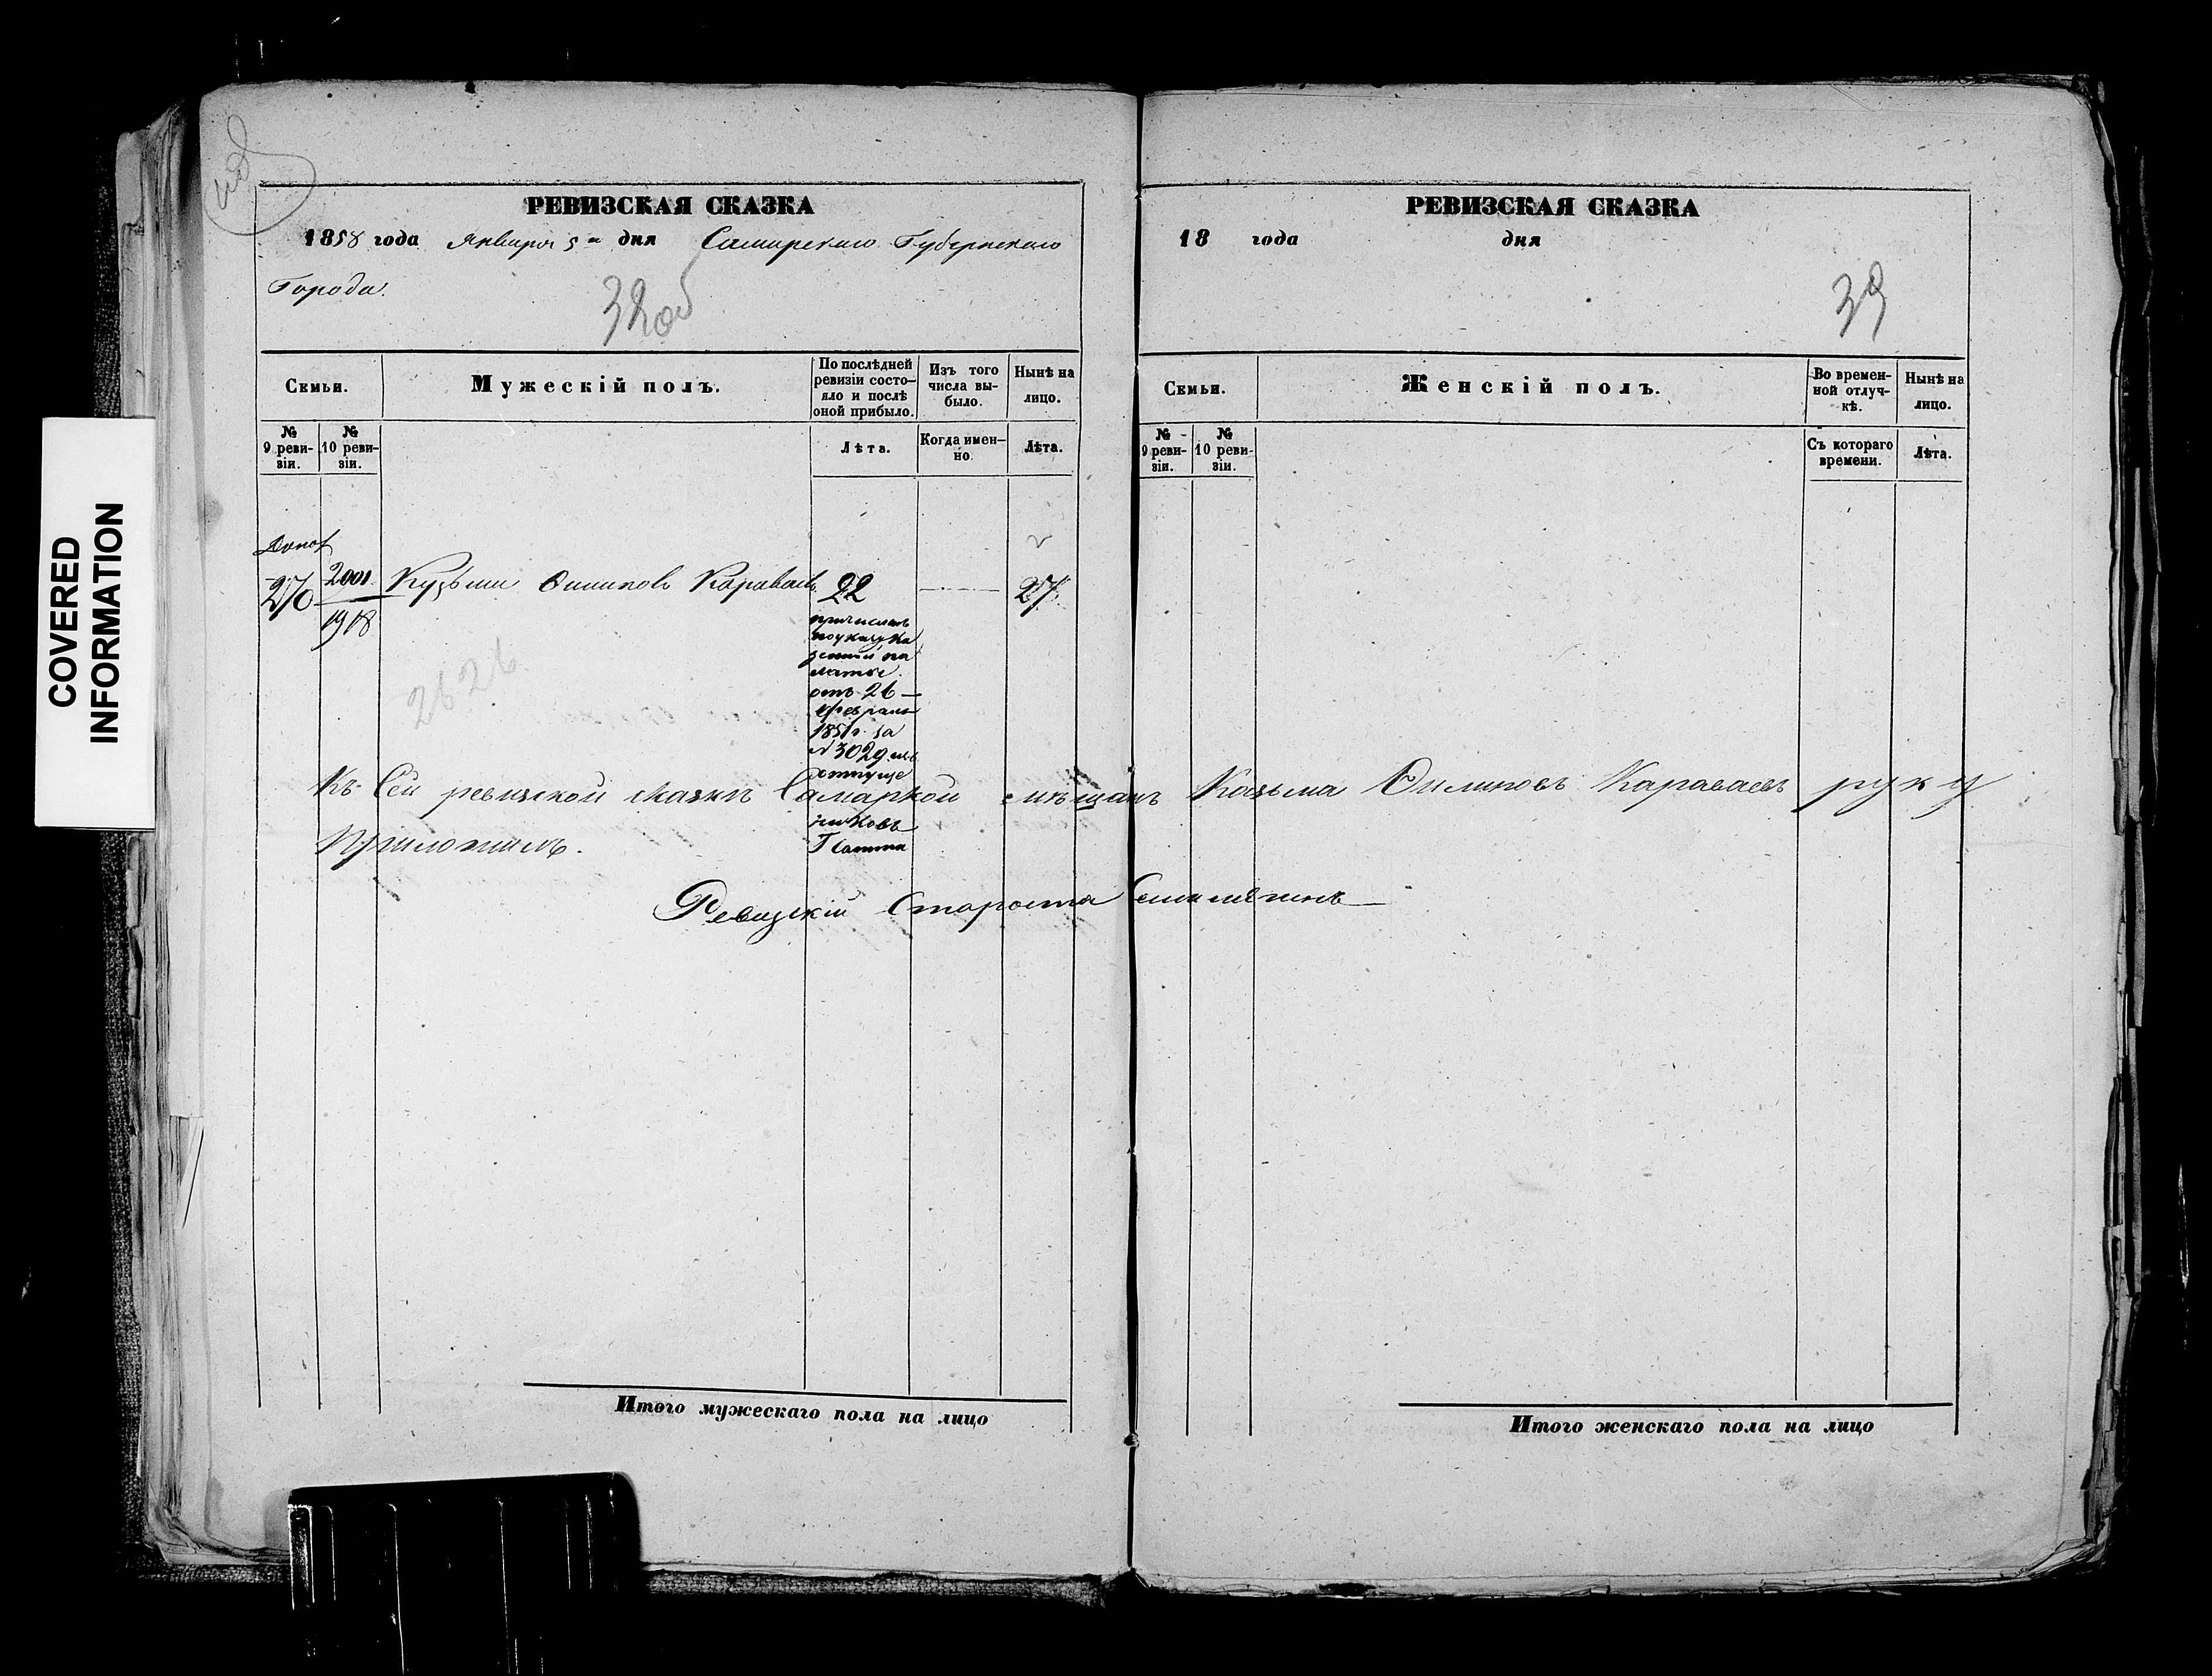 COVERED
INFORMATION
РЕВИЗСКАЯ СКАЗКА
1858 года Января 5 дня Самарскаго Губернскаго
Города.
32об
Семьи.
Мужескій полъ.
По послѣдней
ревизіи состо-
яло и послѣ
оной прибыло.
Изъ того
числа вы-
было.
Нынѣ на
лицо.
№
9 реви-
зіи.
№
10 реви-
зіи.
Лѣта.
Когда имен-
но
Лѣта.
Допол
270 2001 Кузьма Филиповъ Караваевъ 22 27
1918
причисленъ
по указу Ка
зенной па
латы
отъ 26
февраля
1851 г. за
№ 3029 изъ
отпуще
никовъ
2626.
Къ Сей ревизской сказкѣ Самаркой мѣщанъ Козьма Филиповъ Караваевъ руку
приложилъ.
Ревизскій Староста
РЕВИЗСКАЯ СКАЗКА
18 года дня
39
Семьи.
Женскій полъ.
Во времен-
ной отлуч-
кѣ.
Нынѣ на
лицо.
№
9 реви-
зіи.
№
10 реви-
зіи.
Съ котораго
времени.
Лѣта.
Итого мужескаго пола на лицо
Итого женскаго пола на лицо